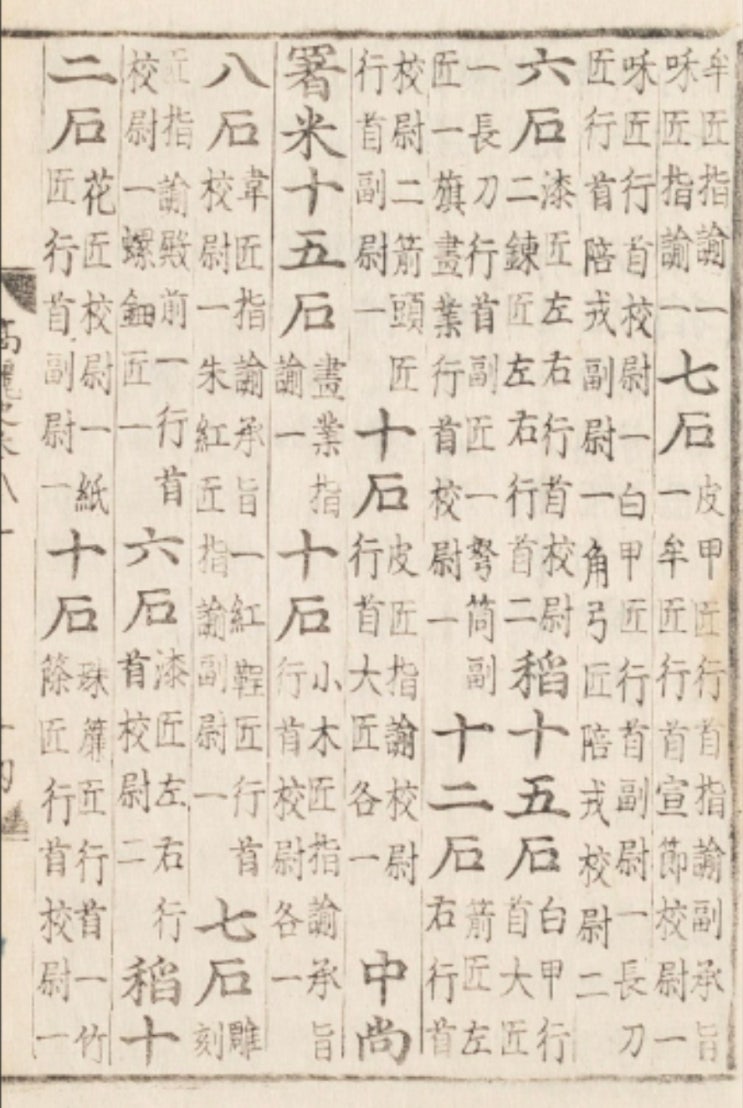 牟匠指諭一咊匠指諭一七石皮甲匠行首指諭副承旨一牟匠行首宣節校尉一
咊匠行首校尉一白甲匠行首副尉一長刀匠行首陪戎副尉一角弓匠陪戎校尉二
六石漆匠左右行首校尉二鍊匠左右行首二稻十五石白甲行首大匠
一長刀行首副匠一弩筒副匠一旗畫業行首校尉一十二石箭匠左右行首
校尉二箭頭匠行首副尉一十石皮匠指諭校尉行首大匠各一中尚
署米十五石畫業指諭一十石小木匠指諭承旨行首校尉各一
八石韋匠指諭承旨一紅鞓匠行首校尉一朱紅匠指諭副尉一七石雕刻
匠指諭殿前一行首校尉一螺鈿匠一六石漆匠左右行首校尉二稻十
二石花匠校尉一紙匠行首副尉一十石珠簾匠行首一竹篨匠行首校尉一